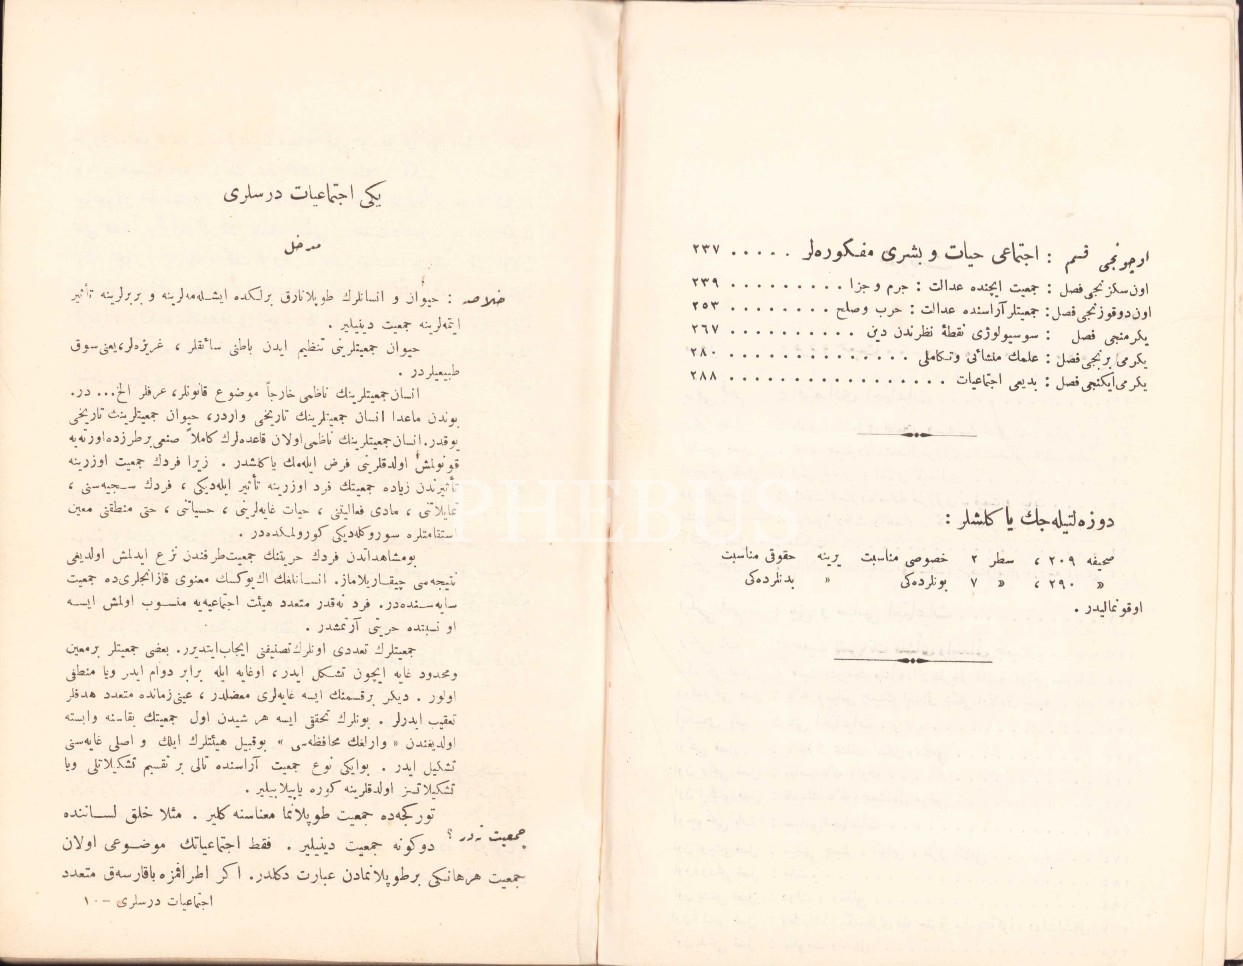 اوچونجی قسم : اجتماعی حیات و بشری مفکوره‌لر ..... ٢٣٧
اون سکزنجی فصل : جمعیت ایچنده عدالت : جرم و جزا ......... ٢٣٩
اون دوقوزنجی فصل : جمعیتلر آراسنده عدالت : حرب و صلح ........ ٢٥٣
یکرمنجی فصل : سوسیولوژی نقطهٔ نظرندن دین .......... ٢٦٧
یکرمی برنجی فصل : علمك منشائی و تکاملی ............. ٢٨٠
یکرمی ایکنجی فصل : بدیعی اجتماعیات ................. ٢٨٨
دوزه‌لتیله‌جك یاکلشلر :
صحیفه ٢٠٩ ، سطر ٢ خصوصی مناسبت یرینه حقوقی مناسبت
« ٢٩٠ ، « ٧ بونلرده‌کی « بدنلرده‌کی
اوقونمالیدر .
یکی اجتماعیات درسلری
مدخل
خلاصه : حیوان و انسانلرك طوپلانارق برلکده ایشله‌مه‌لرینه و بربرلرینه تأثیر
ایتمه‌لرینه جمعیت دینیلیر .
حیوان جمعیتلرینی تنظیم ایدن باطنی سائقلر ، غریزه‌لر ، یعنی سوق
طبیعیلردر .
انسان جمعیتلرینك ناظمی خارجاً موضوع قانونلر، عرفلر الخ... در.
بوندن ماعدا انسان جمعیتلرینك تاریخی واردر، حیوان جمعیتلرینك تاریخی
یوقدر. انسان جمعیتلرینك ناظمی اولان قاعده‌لرك کاملاً صنعی بر طرزده اورته‌یه
قونولمش اولدقلرینی فرض ایله‌مك یاکلشدر . زیرا فردك جمعیت اوزرینه
تأثیرندن زیاده جمعیتك فرد اوزرینه تأثیر ایله‌دیکی ، فردك سجیه‌سنی ،
تمایلاتنی ، مادی فعالیتنی ، حیات غایه‌لرینی ، حسیاتنی ، حتی منطقنی معین
استقامتلره سوروکله‌دیکی کورولمکده‌در .
بو مشاهداتدن فردك حریتنك جمعیت طرفندن نزع ایدلمش اولدیغی
نتیجه‌سی چیقاریلاماز. انسانلغك اك یوکسك معنوی قازانجلری‌ده جمعیت
سایه‌سنده‌در. فرد نه‌قدر متعدد هیئت اجتماعیه‌یه منسوب اولمش ایسه
او نسبتده حریتی آرتمشدر .
جمعیتلرك تعددی اونلرك تصنیفنی ایجاب ایتدیرر. بعضی جمعیتلر بر معین
ومحدود غایه ایچون تشکل ایدر، او غایه ایله برابر دوام ایدر ویا منطفی
اولور . دیکر بر قسمنك ایسه غایه‌لری معضلدر ، عینی زمانده متعدد هدفلر
تعقیب ایدرلر . بونلرك تحققی ایسه هر شیدن اول جمعیتك بقاسنه وابسته
اولدیغندن « وارلغك محافظه‌سی » بو قبیل هیئتلرك ایلك و اصلی غایه‌سنی
تشکیل ایدر . بو ایکی نوع جمعیت آراسنده تالی بر تقسیم تشکیلاتلی ویا
تشکیلاتسز اولدقلرینه کوره یاپیلابیلیر .
جمعیت نه‌در ؟
تورکجه‌ده جمعیت طوپلانما معناسنه کلیر . مثلا خلق لساننده
دوکونه جمعیت دینیلیر . فقط اجتماعیاتك موضوعی اولان
جمعیت هرهانکی بر طوپلانمادن عبارت دکلدر. اکر اطرافمزه باقارسه‌ق متعدد
اجتماعیات درسلری — ١٠
PHEBUS